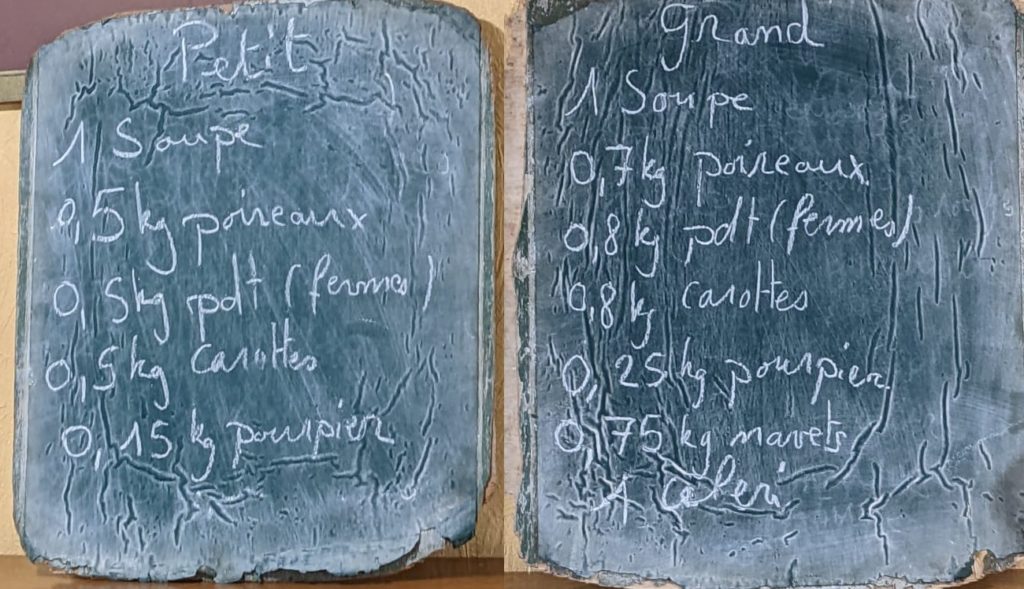 Petit
1 Soupe
0,5 kg poireaux
0,5 kg pdt (fermes)
0,5 kg carottes
0,15 kg pourpier
Grand
1 Soupe
0,7 kg poireaux
0,8 kg pdt (fermes)
0,8 kg carottes
0,25 kg pourpier
0,75 kg navets
1 Céleri